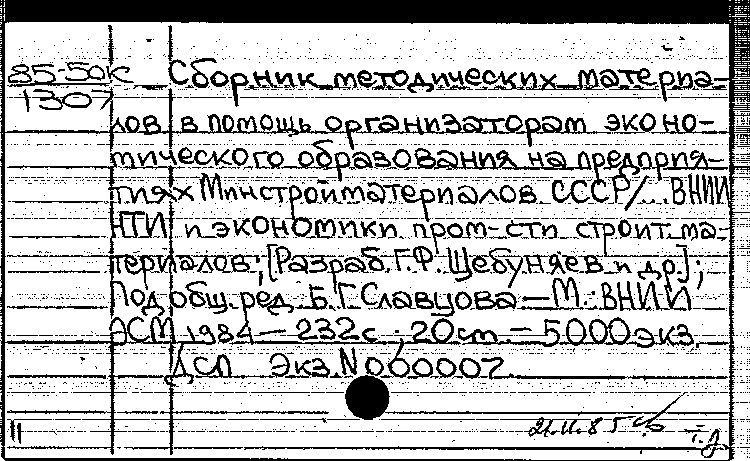 85-50К Сборник методических материа-
1307
лов в помощь организаторам эконо-
мического образования на предприя-
тиях Минстройматериалов СССР/... ВНИИ
НТИ и экономики пром-сти строит. ма-
териалов; [Разраб. Г.Ф. Щебуняев и др.];
Под общ. ред. Б.Г. Славцова — М.: ВНИИ
ЭСМ, 1984 — 232с.; 20см. — 5000 экз.
ДСП Экз. N 060007.
21.11.85
11